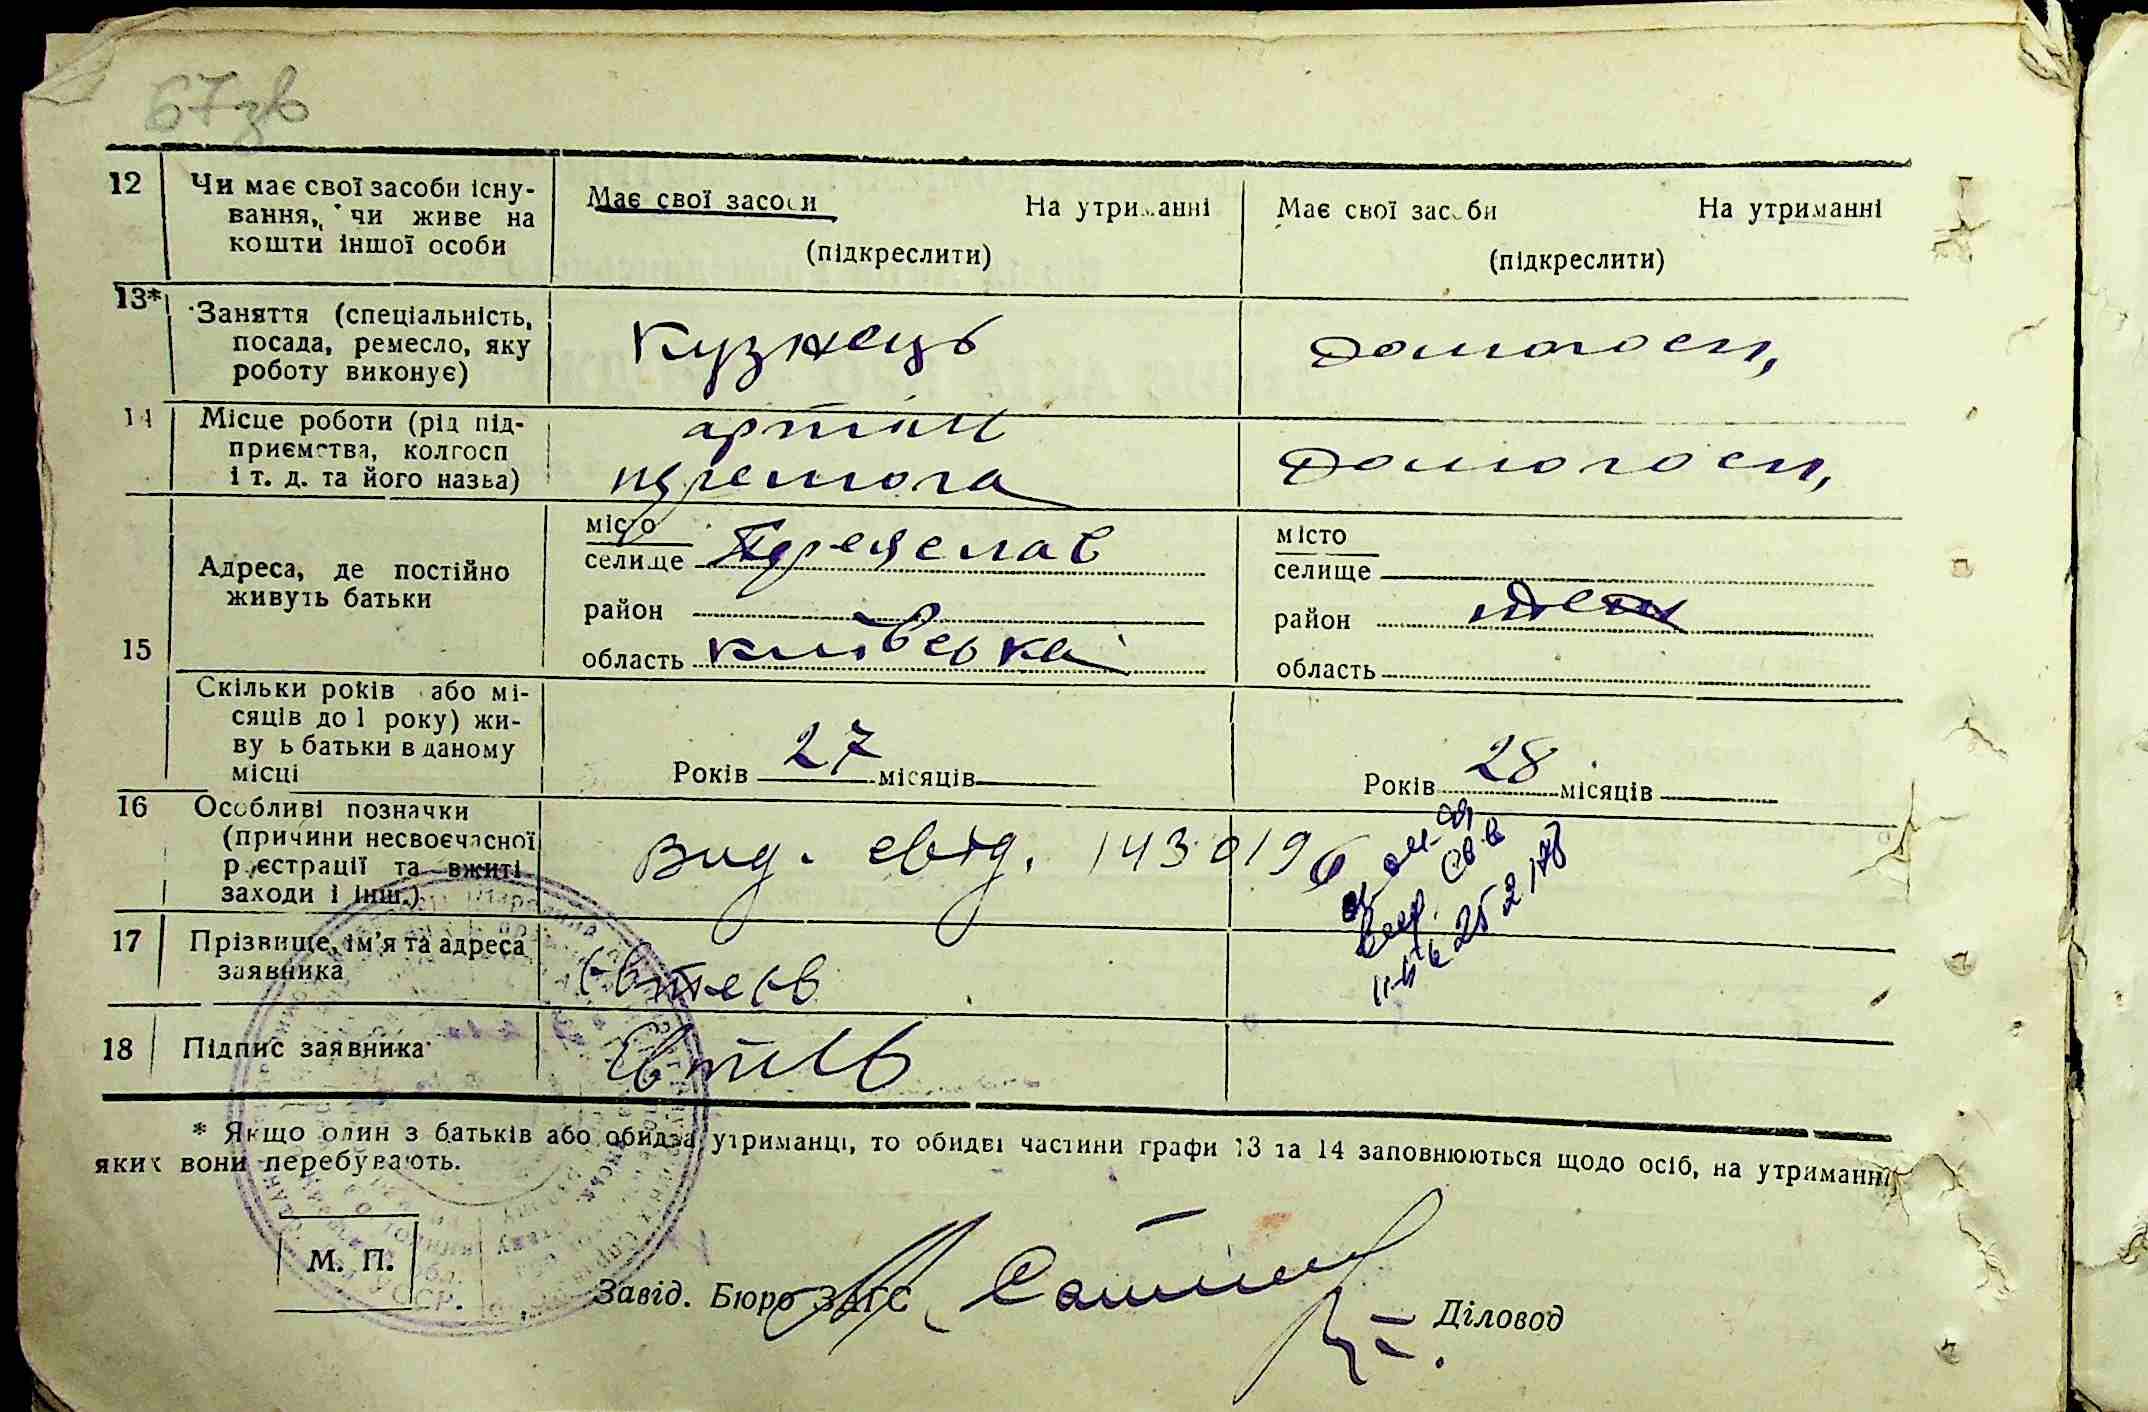 67зв
12 Чи має свої засоби існу-
вання, чи живе на
кошти іншої особи
Має свої засоби На утриманні
(підкреслити)
Має свої засоби На утриманні
(підкреслити)
13* Заняття (спеціальність,
посада, ремесло, яку
роботу виконує)
Кузнець
домогосп,
14 Місце роботи (рід під-
приємства, колгосп
і т. д. та його назва)
артіль
перемога
домогосп,
15 Адреса, де постійно
живуть батьки
місто
селище Переяслав
район
область київська
місто
селище
район
область
Скільки років або мі-
сяців до 1 року) жи-
ву ь батьки в даному
місці
Років 27 місяців
Років 28 місяців
16 Особливі позначки
(причини несвоєчасної
реєстрації та вжиті
заходи і інш.)
вид. свід. 143019
252178
17 Прізвище, ім'я та адреса
заявника
18 Підпис заявника
* Якщо один з батьків або обидва утриманці, то обидві частини графи 13 та 14 заповнюються щодо осіб, на утриманні
яких вони перебувають.
М. П.
Завід. Бюро ЗАГС
Діловод